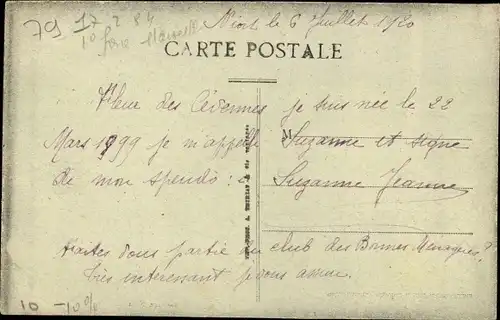 79 17 2 84
Niort le 6 Juillet 1920
CARTE POSTALE
Fleur des Cévennes je suis née le 22
Mars 1899 je m'appelle Suzanne et signe
de mon speudo : Suzanne Jeanne
faites vous partie du club des Bonnes Menagères ?
très intéressant je vous assure.
10 -10%